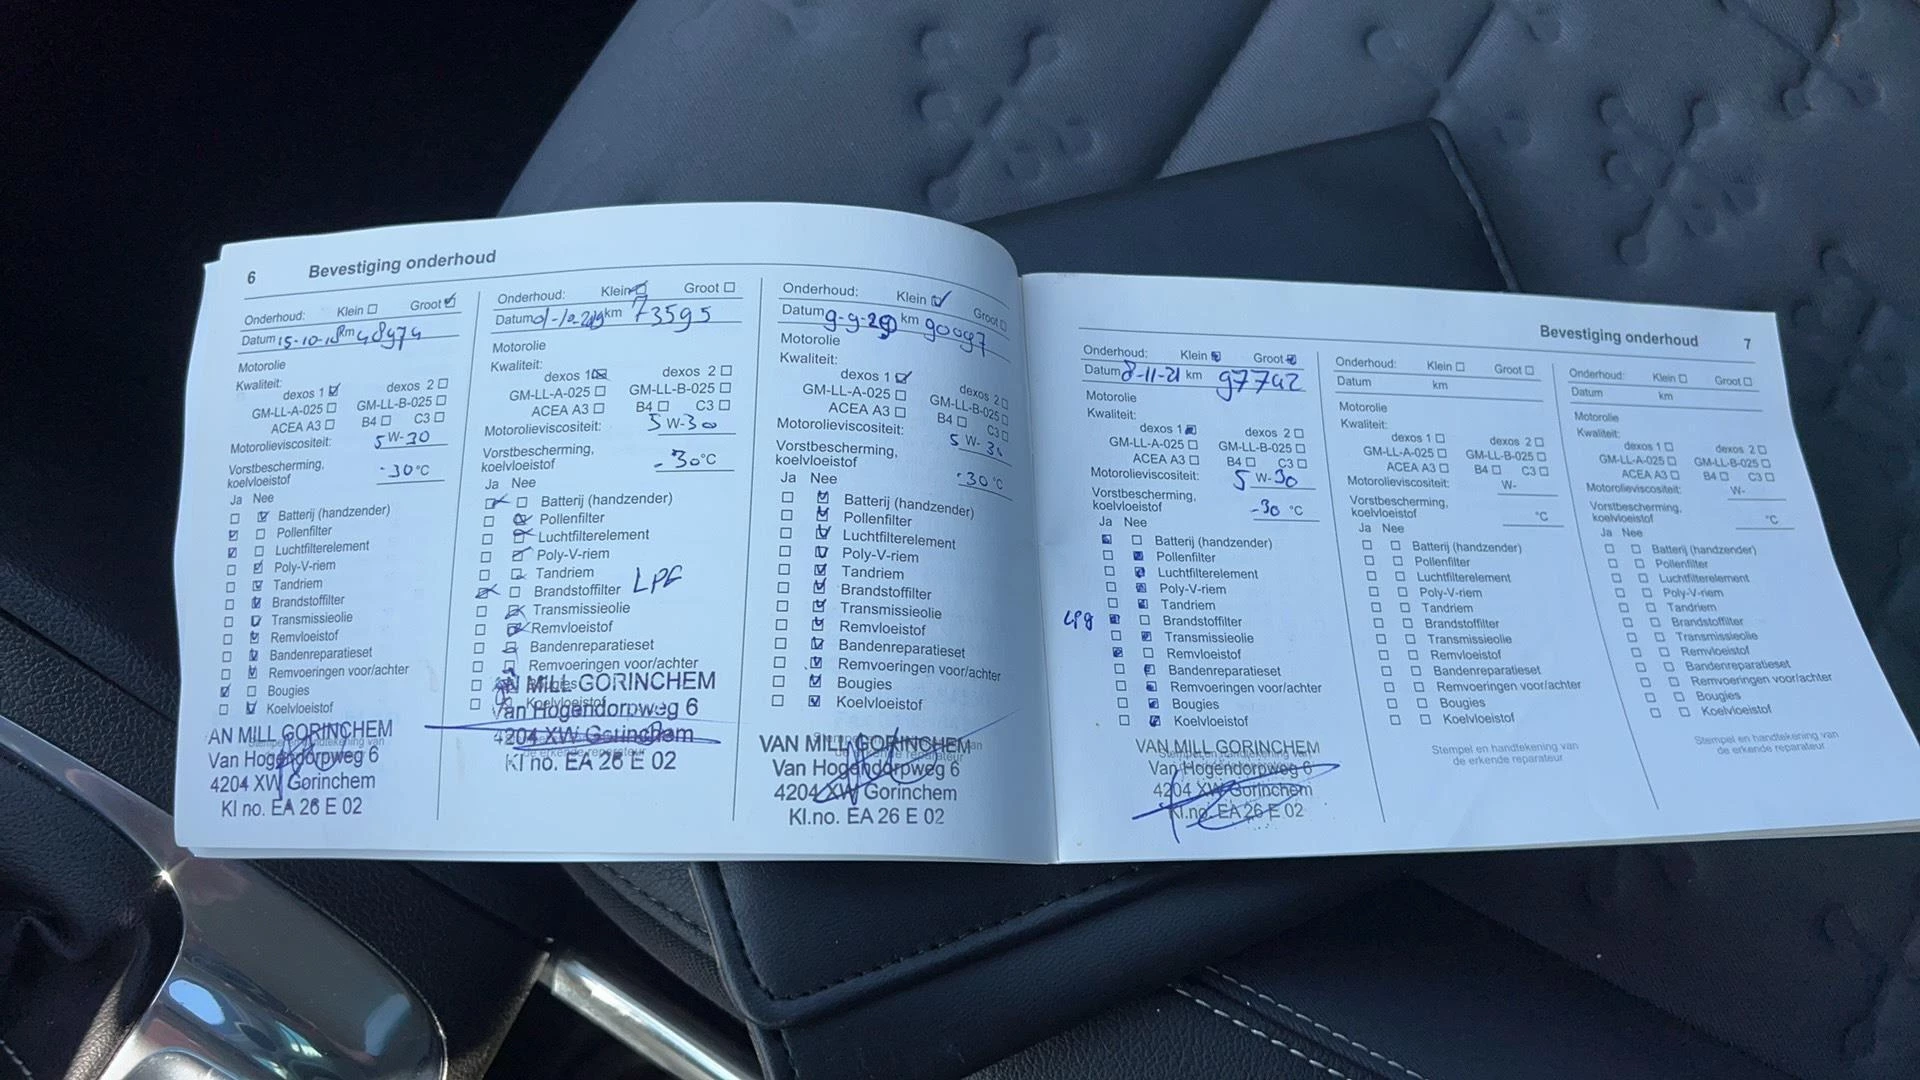 6 Bevestiging onderhoud
Onderhoud: Klein ☐ Groot ☑
Datum 15-10-18 km 48974
Motorolie
Kwaliteit:
dexos 1 ☑ dexos 2 ☐
GM-LL-A-025 ☐ GM-LL-B-025 ☐
ACEA A3 ☐ B4 ☐ C3 ☐
Motorolieviscositeit: 5 W-30
Vorstbescherming,
koelvloeistof -30 °C
Ja Nee
☐ ☑ Batterij (handzender)
☑ ☐ Pollenfilter
☑ ☐ Luchtfilterelement
☐ ☑ Poly-V-riem
☐ ☑ Tandriem
☐ ☑ Brandstoffilter
☐ ☑ Transmissieolie
☐ ☑ Remvloeistof
☐ ☑ Bandenreparatieset
☐ ☑ Remvoeringen voor/achter
☑ ☐ Bougies
☐ ☑ Koelvloeistof
AN MILL GORINCHEM
Van Hogendorpweg 6
4204 XW Gorinchem
Kl no. EA 26 E 02
Onderhoud: Klein ☑ Groot ☐
Datum km 73595
Motorolie
Kwaliteit:
dexos 1 ☑ dexos 2 ☐
GM-LL-A-025 ☐ GM-LL-B-025 ☐
ACEA A3 ☐ B4 ☐ C3 ☐
Motorolieviscositeit: 5 W-30
Vorstbescherming,
koelvloeistof -30 °C
Ja Nee
☑ ☐ Batterij (handzender)
☐ ☑ Pollenfilter
☐ ☑ Luchtfilterelement
☐ ☑ Poly-V-riem
☐ ☑ Tandriem
☑ ☐ Brandstoffilter LPG
☐ ☑ Transmissieolie
☐ ☑ Remvloeistof
☐ ☑ Bandenreparatieset
☐ ☑ Remvoeringen voor/achter
☐ ☑ Bougies
☐ ☑ Koelvloeistof
MILL GORINCHEM
Van Hogendorpweg 6
4204 XW Gorinchem
de erkende reparateur
Kl no. EA 26 E 02
Onderhoud: Klein ☑ Groot ☐
Datum 9-9-20 km 90097
Motorolie
Kwaliteit:
dexos 1 ☑ dexos 2 ☐
GM-LL-A-025 ☐ GM-LL-B-025 ☐
ACEA A3 ☐ B4 ☐ C3 ☐
Motorolieviscositeit: 5 W-30
Vorstbescherming,
koelvloeistof -30 °C
Ja Nee
☐ ☑ Batterij (handzender)
☐ ☑ Pollenfilter
☐ ☑ Luchtfilterelement
☐ ☑ Poly-V-riem
☐ ☑ Tandriem
☐ ☑ Brandstoffilter
☐ ☑ Transmissieolie
☐ ☑ Remvloeistof
☐ ☑ Bandenreparatieset
☐ ☑ Remvoeringen voor/achter
☐ ☑ Bougies
☐ ☑ Koelvloeistof
VAN MILL GORINCHEM
Van Hogendorpweg 6
4204 XW Gorinchem
Kl.no. EA 26 E 02
Bevestiging onderhoud 7
Onderhoud: Klein ☑ Groot ☑
Datum 8-11-21 km 97742
Motorolie
Kwaliteit:
dexos 1 ☑ dexos 2 ☐
GM-LL-A-025 ☐ GM-LL-B-025 ☐
ACEA A3 ☐ B4 ☐ C3 ☐
Motorolieviscositeit: 5 W-30
Vorstbescherming,
koelvloeistof -30 °C
Ja Nee
☑ ☐ Batterij (handzender)
☐ ☑ Pollenfilter
☐ ☑ Luchtfilterelement
☐ ☑ Poly-V-riem
☐ ☑ Tandriem
LPG ☑ ☐ Brandstoffilter
☐ ☑ Transmissieolie
☑ ☐ Remvloeistof
☐ ☑ Bandenreparatieset
☐ ☑ Remvoeringen voor/achter
☐ ☑ Bougies
☐ ☑ Koelvloeistof
VAN MILL GORINCHEM
Van Hogendorpweg 6
4204 XW Gorinchem
Kl.no. EA 26 E 02
Onderhoud: Klein ☐ Groot ☐
Datum km
Motorolie
Kwaliteit:
dexos 1 ☐ dexos 2 ☐
GM-LL-A-025 ☐ GM-LL-B-025 ☐
ACEA A3 ☐ B4 ☐ C3 ☐
Motorolieviscositeit: W-
Vorstbescherming,
koelvloeistof °C
Ja Nee
☐ ☐ Batterij (handzender)
☐ ☐ Pollenfilter
☐ ☐ Luchtfilterelement
☐ ☐ Poly-V-riem
☐ ☐ Tandriem
☐ ☐ Brandstoffilter
☐ ☐ Transmissieolie
☐ ☐ Remvloeistof
☐ ☐ Bandenreparatieset
☐ ☐ Remvoeringen voor/achter
☐ ☐ Bougies
☐ ☐ Koelvloeistof
Stempel en handtekening van
de erkende reparateur
Onderhoud: Klein ☐ Groot ☐
Datum km
Motorolie
Kwaliteit:
dexos 1 ☐ dexos 2 ☐
GM-LL-A-025 ☐ GM-LL-B-025 ☐
ACEA A3 ☐ B4 ☐ C3 ☐
Motorolieviscositeit: W-
Vorstbescherming,
koelvloeistof °C
Ja Nee
☐ ☐ Batterij (handzender)
☐ ☐ Pollenfilter
☐ ☐ Luchtfilterelement
☐ ☐ Poly-V-riem
☐ ☐ Tandriem
☐ ☐ Brandstoffilter
☐ ☐ Transmissieolie
☐ ☐ Remvloeistof
☐ ☐ Bandenreparatieset
☐ ☐ Remvoeringen voor/achter
☐ ☐ Bougies
☐ ☐ Koelvloeistof
Stempel en handtekening van
de erkende reparateur